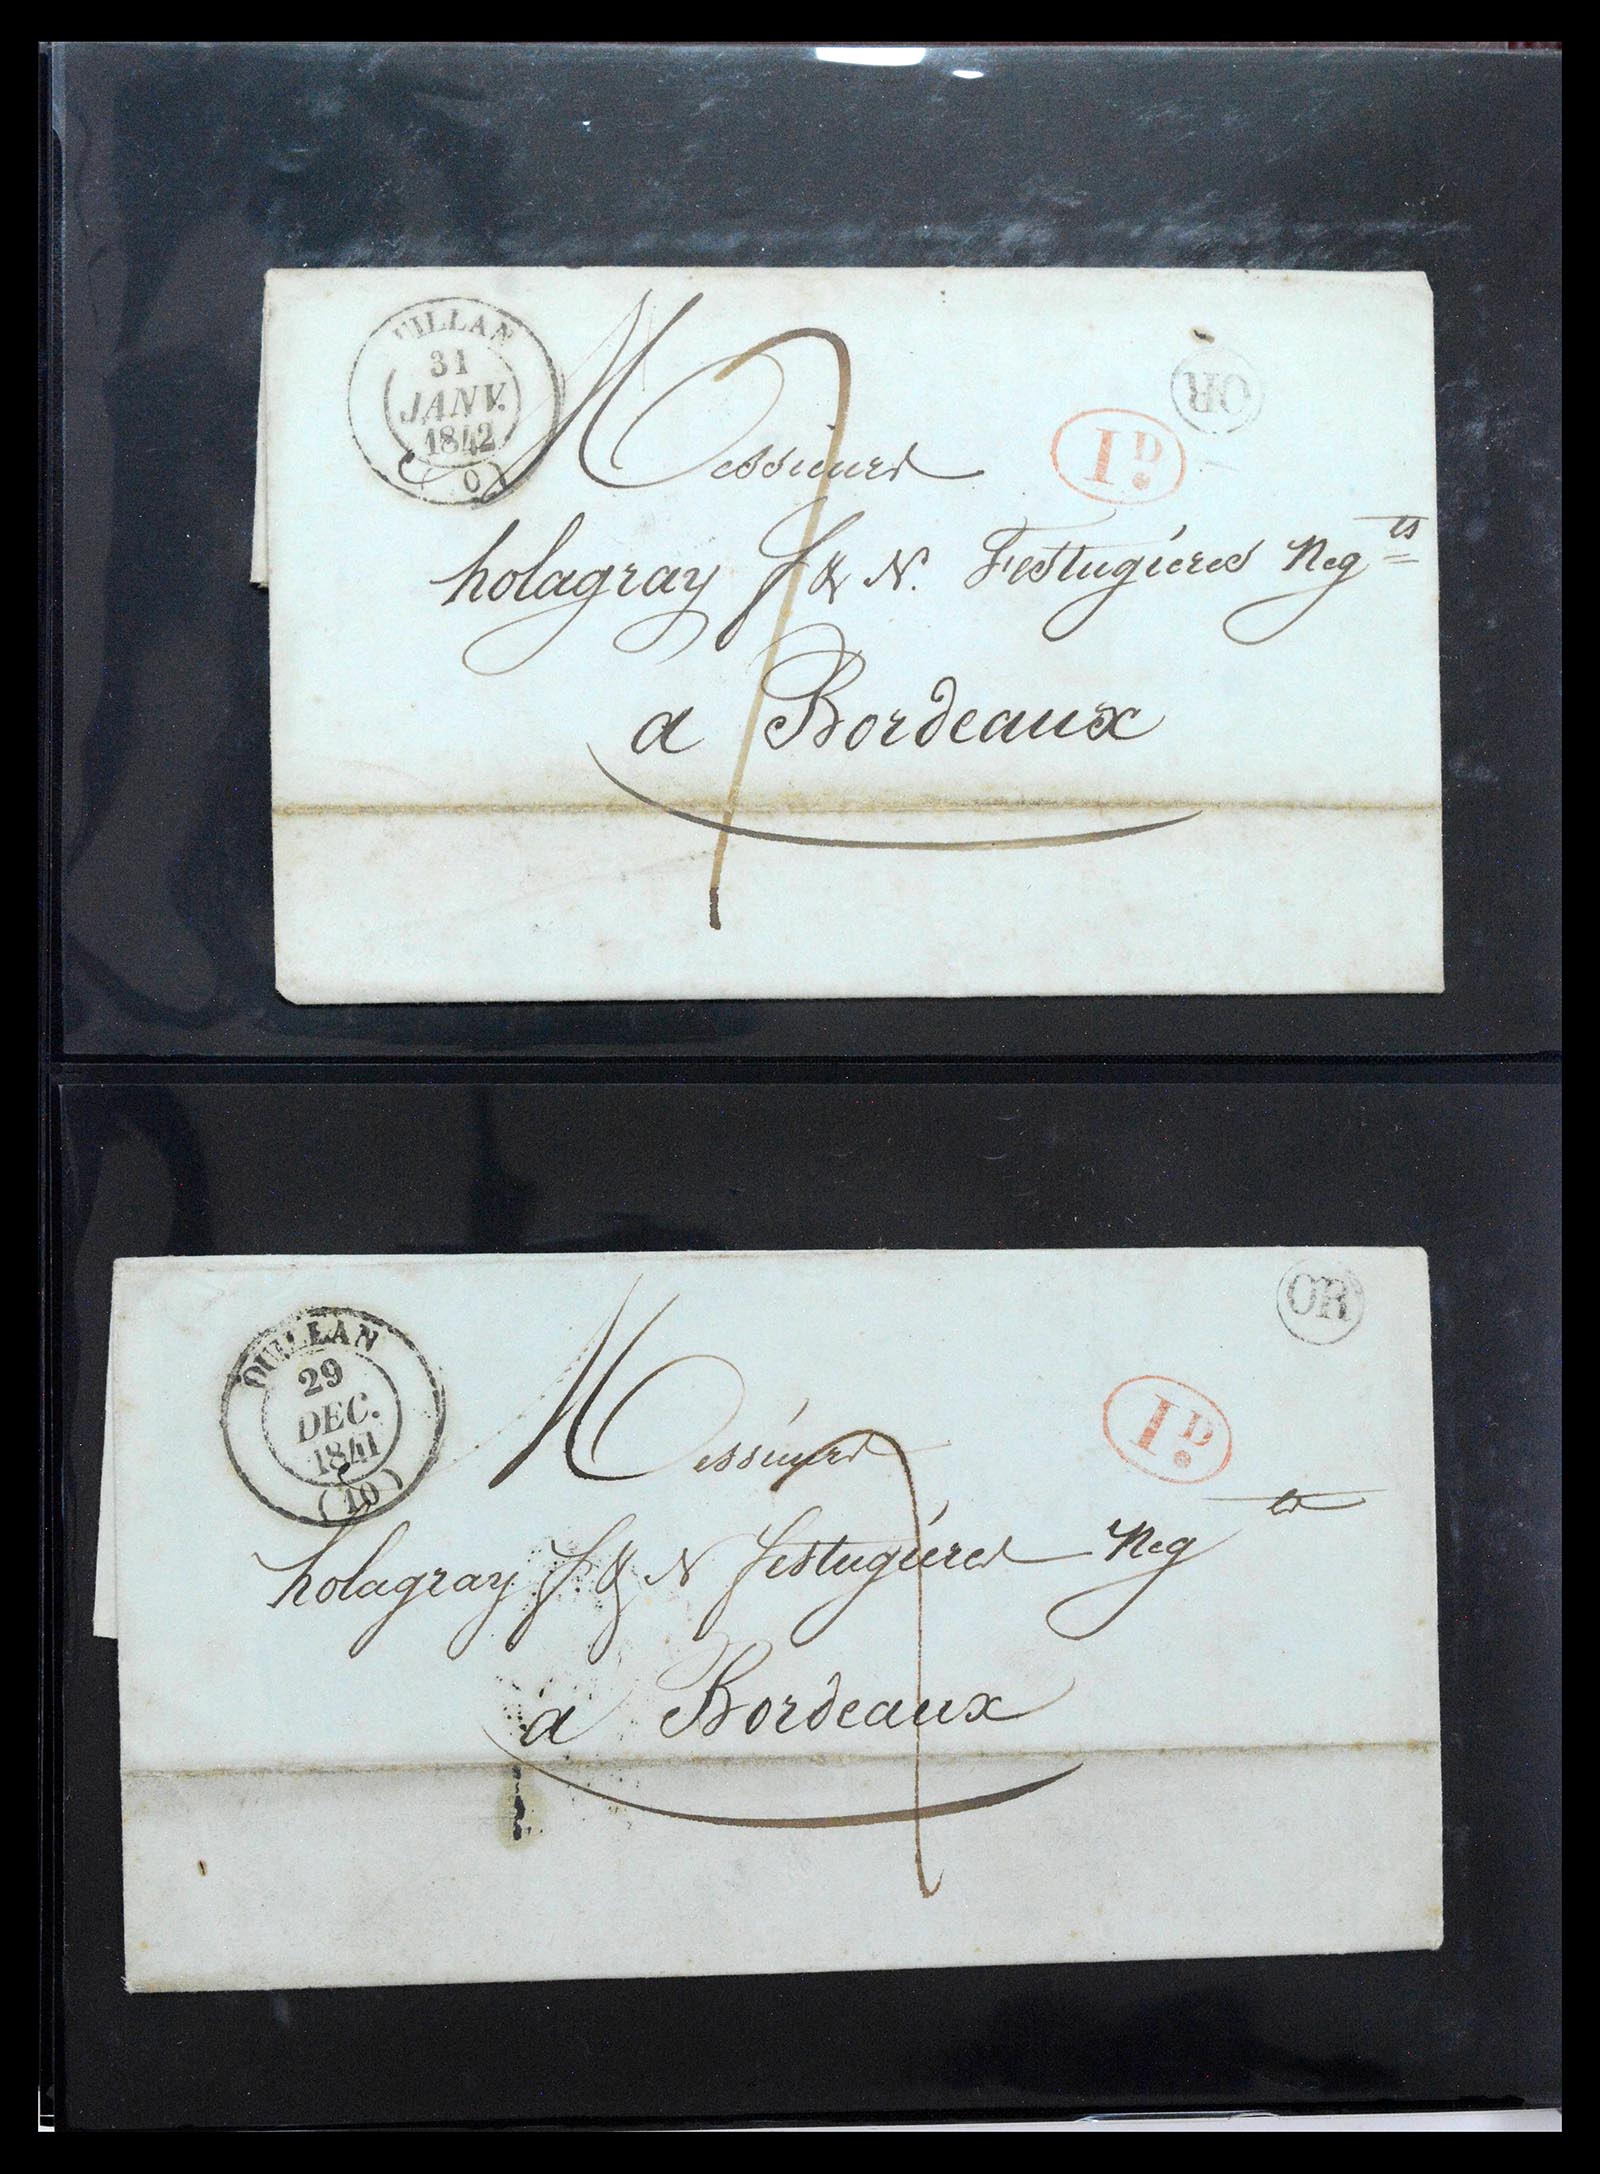 31
JANV.
1842
OR
1D
7
Messieurs
holagray f & N. Festugières Negts
a Bordeaux
QUILLAN
29
DEC.
1841
(10)
OR
1D
7
Messieurs
holagray f. & N festugières Negts
a Bordeaux